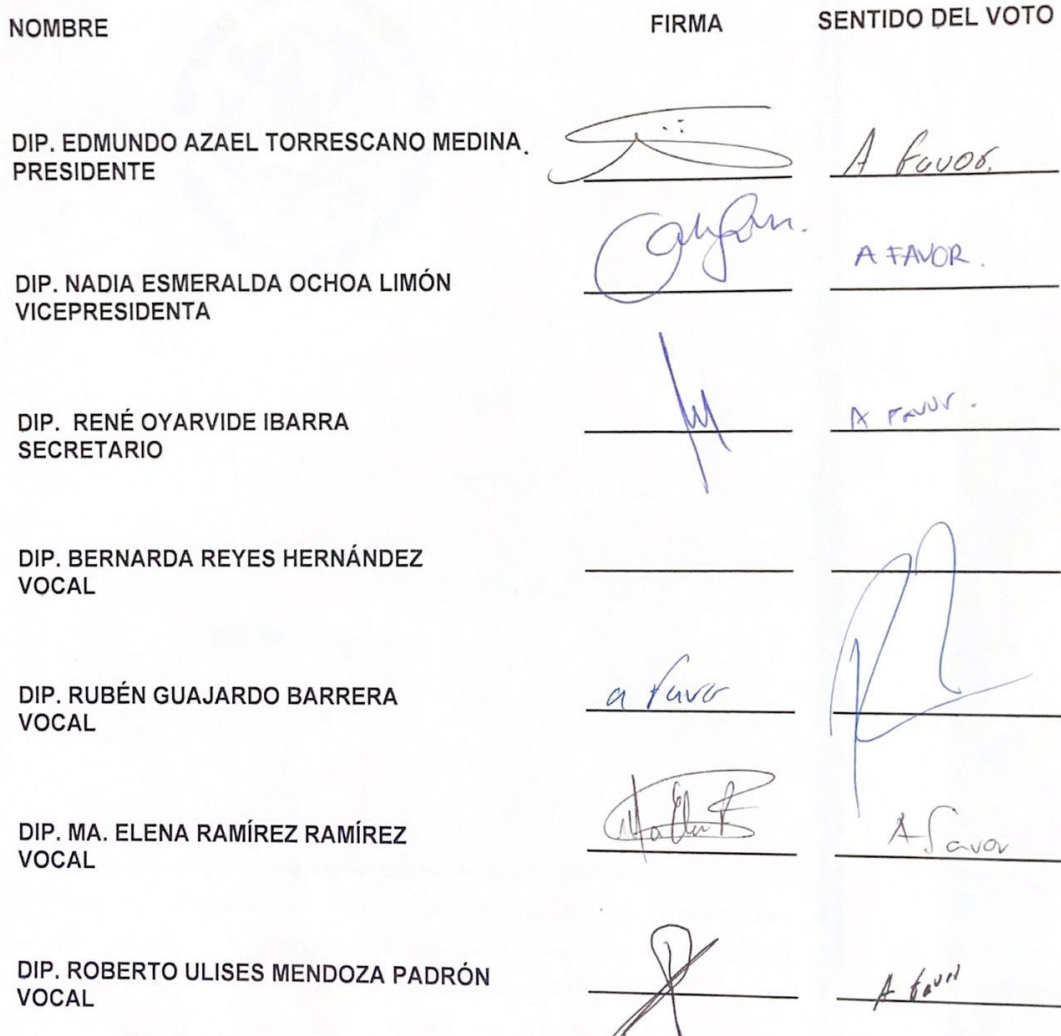 NOMBRE FIRMA SENTIDO DEL VOTO
DIP. EDMUNDO AZAEL TORRESCANO MEDINA.
PRESIDENTE
A favor.
DIP. NADIA ESMERALDA OCHOA LIMÓN
VICEPRESIDENTA
A FAVOR.
DIP. RENÉ OYARVIDE IBARRA
SECRETARIO
A FAVOR.
DIP. BERNARDA REYES HERNÁNDEZ
VOCAL
DIP. RUBÉN GUAJARDO BARRERA
VOCAL
a favor
DIP. MA. ELENA RAMÍREZ RAMÍREZ
VOCAL
A favor
DIP. ROBERTO ULISES MENDOZA PADRÓN
VOCAL
A favor